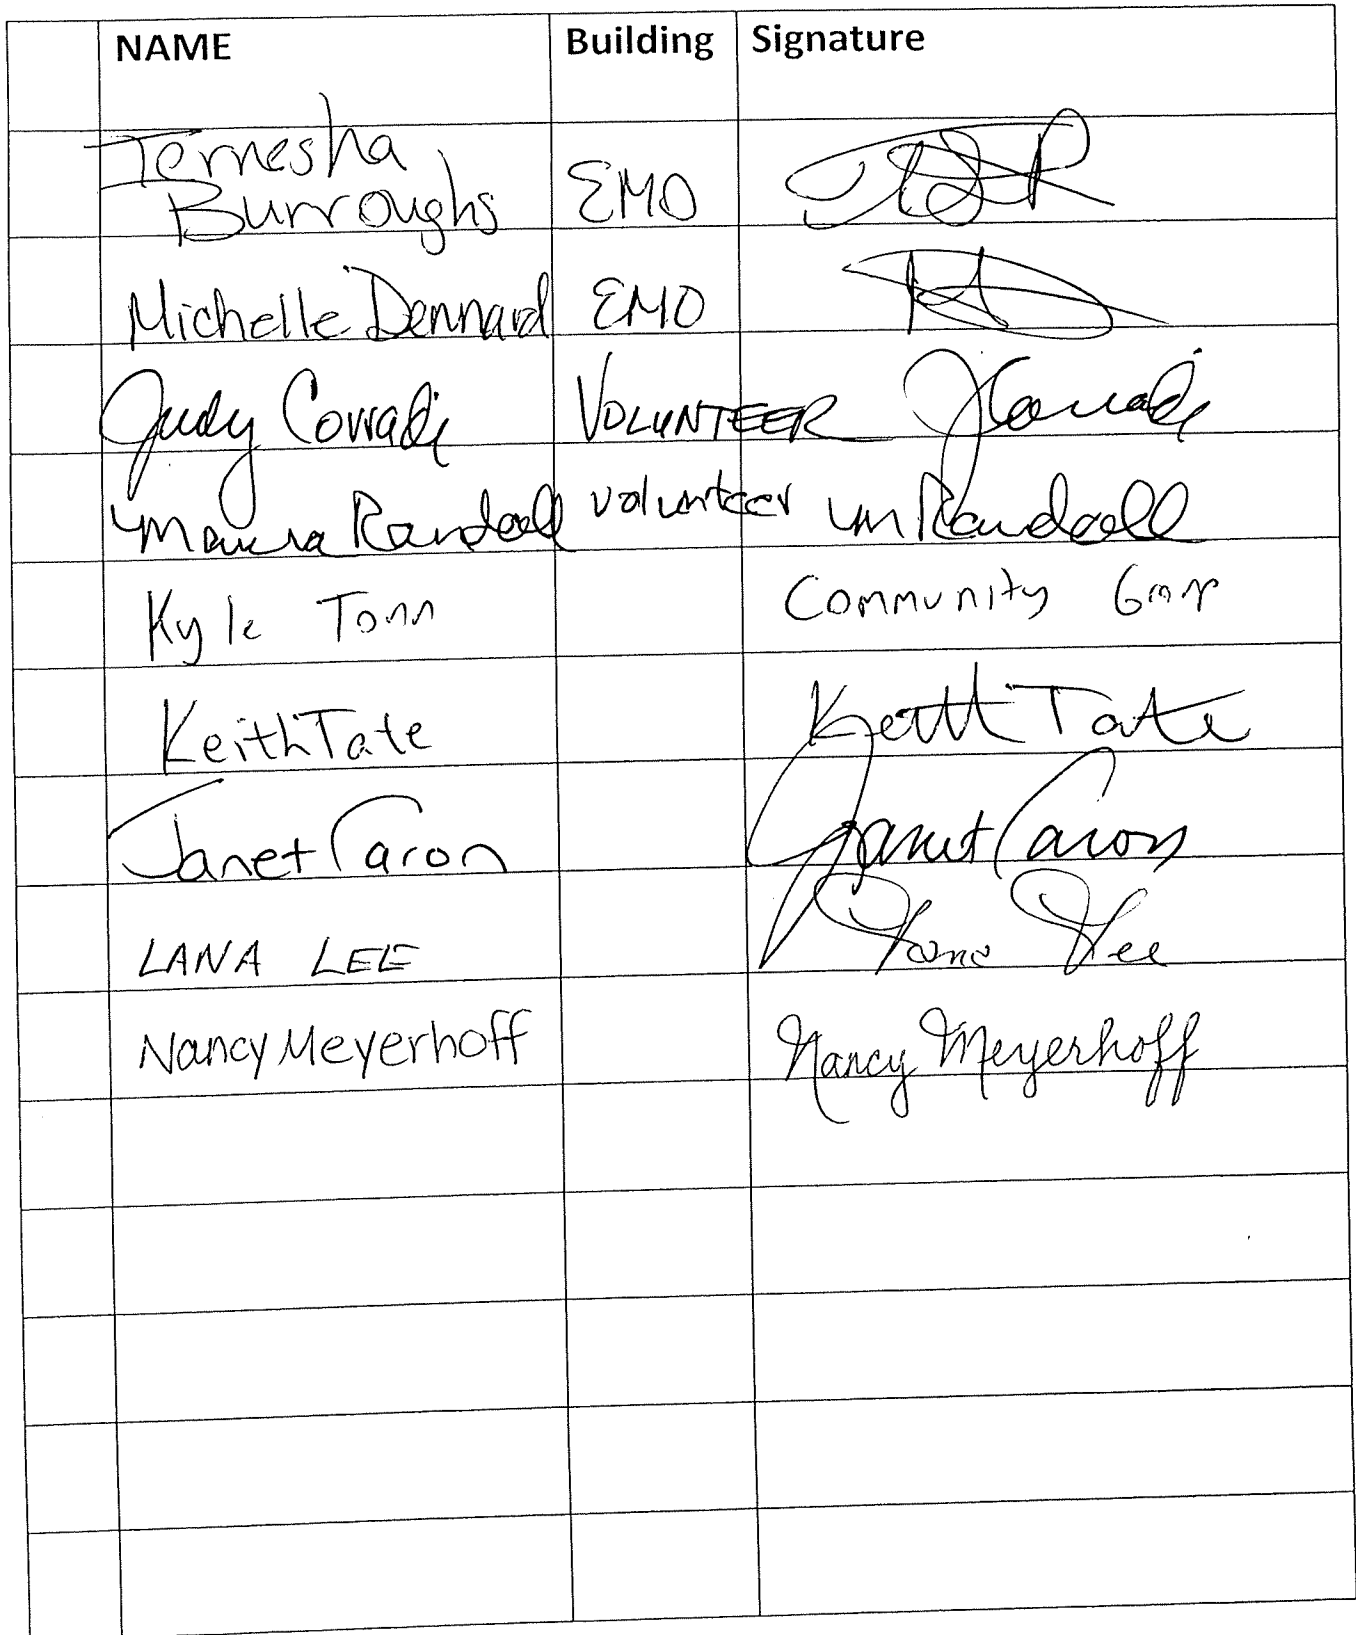 NAME Building Signature
Ternesha
Burroughs EMO
Michelle Dennard EMO
Judy Corradi VOLUNTEER JCorradi
Randall volunteer m Randall
Kyle Tonn Community
Keith Tate Keith Tate
Janet Caron Janet Caron
LANA LEE Lana Lee
Nancy Meyerhoff Nancy Meyerhoff